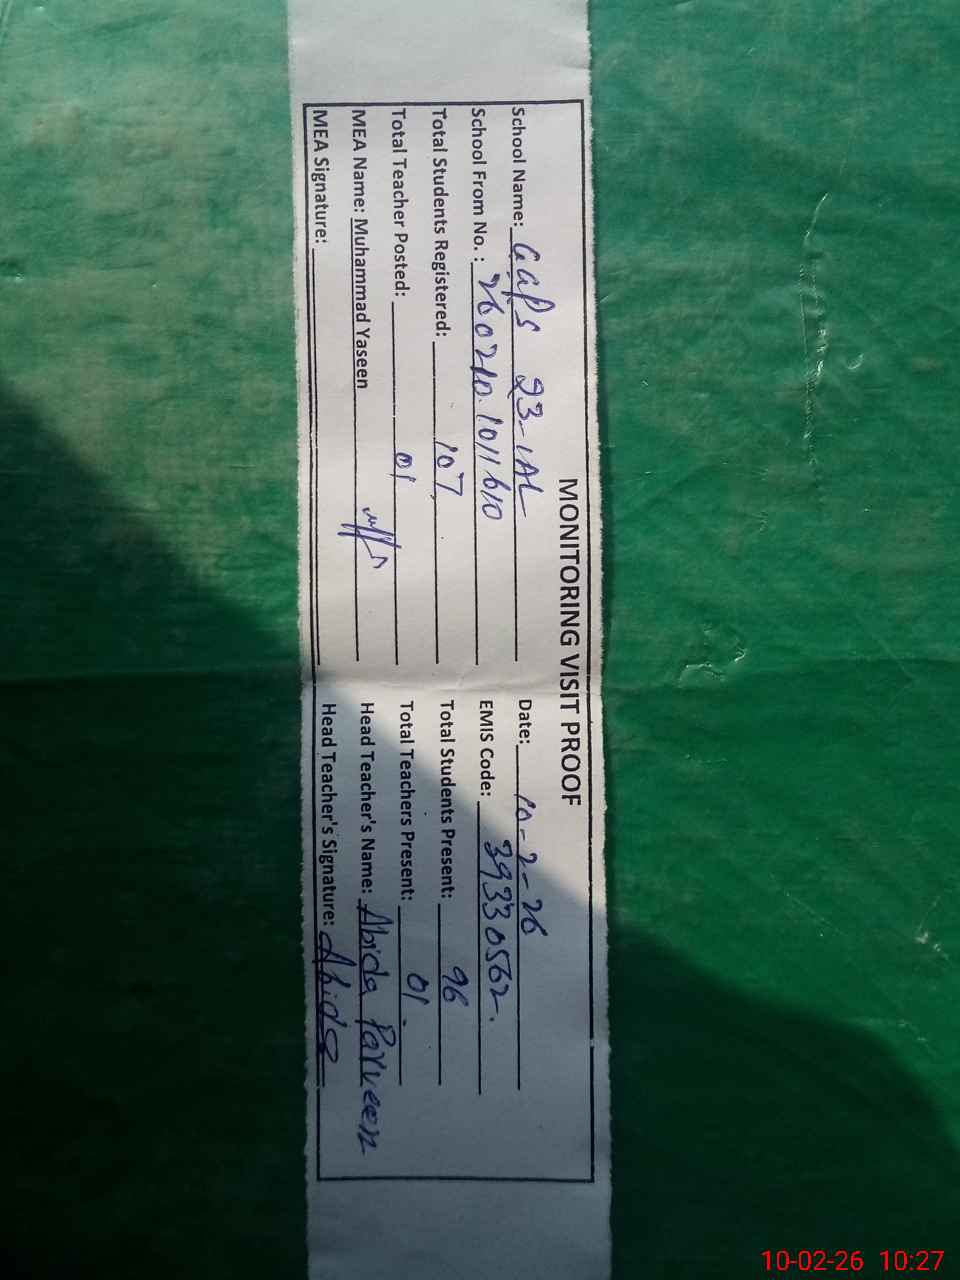 MONITORING VISIT PROOF
School Name: GGPS 93-1AL Date: 10-2-26
School From No. : 260210.1011610 EMIS Code: 39330562.
Total Students Registered: 107 Total Students Present: 96
Total Teacher Posted: 01 Total Teachers Present: 01.
MEA Name: Muhammad Yaseen Head Teacher's Name: Abida Parveen
MEA Signature: Head Teacher's Signature: Abida
10-02-26 10:27